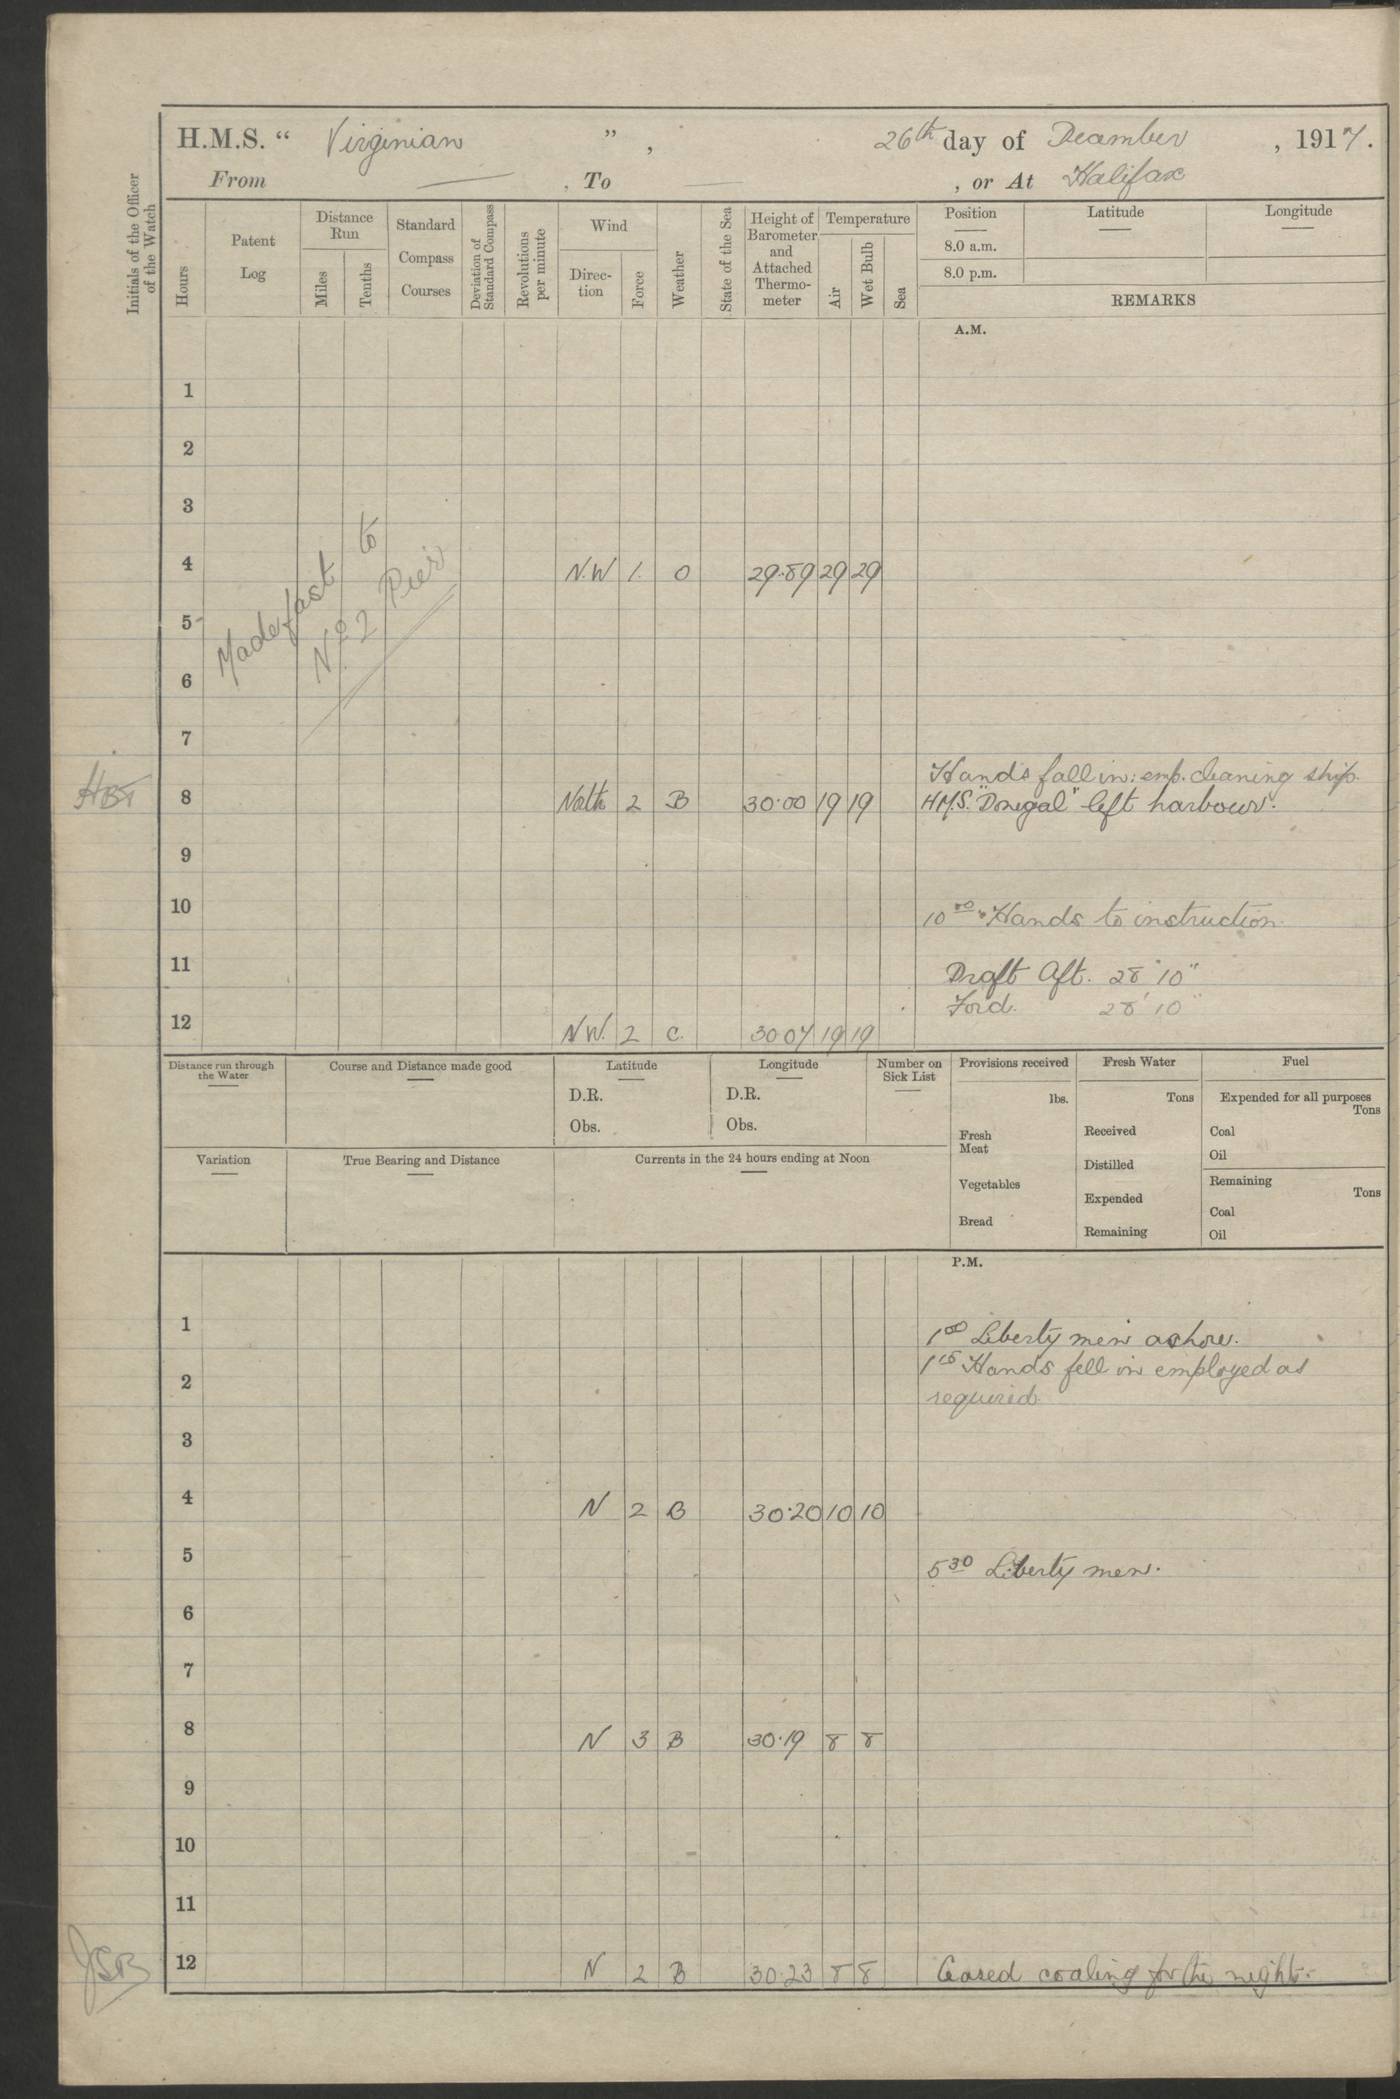 H.M.S. “ Virginian ” , 26th day of December , 1917.
From — , To — , or At Halifax
Initials of the Officer of the Watch
Hours
Patent Log
Distance Run
Miles
Tenths
Standard Compass Courses
Deviation of Standard Compass
Revolutions per minute
Wind
Direc-tion
Force
Weather
State of the Sea
Height of Barometer and Attached Thermo-meter
Temperature
Air
Wet Bulb
Sea
Position
8.0 a.m.
8.0 p.m.
Latitude
Longitude
REMARKS
A.M.
1
2
3
4 N.W 1. O 29.89 29 29
Made fast to
No. 2 Pier
5
6
7
Hands fall in: emp. cleaning ship.
HBT 8 North 2 B 30.00 19 19 H.M.S. "Donegal" left harbour.
9
10 10 00 Hands to instruction.
11 Draft Aft. 28' 10"
Ford. 28' 10"
12 N.W. 2 C. 30 07 19 19
Distance run through the Water
Course and Distance made good
Latitude
D.R.
Obs.
Longitude
D.R.
Obs.
Number on Sick List
Provisions received
lbs.
Fresh Meat
Vegetables
Bread
Fresh Water
Tons
Received
Distilled
Expended
Remaining
Fuel
Expended for all purposes
Tons
Coal
Oil
Remaining
Tons
Coal
Oil
Variation
True Bearing and Distance
Currents in the 24 hours ending at Noon
P.M.
1 1 00 Liberty men ashore.
1 15 Hands fell in employed as
2 required.
3
4 N 2 B 30.20 10 10
5 5 30 Liberty men.
6
7
8 N 3 B 30.19 8 8
9
10
11
JSB 12 N 2 B 30.23 8 8 Ceased coaling for the night.